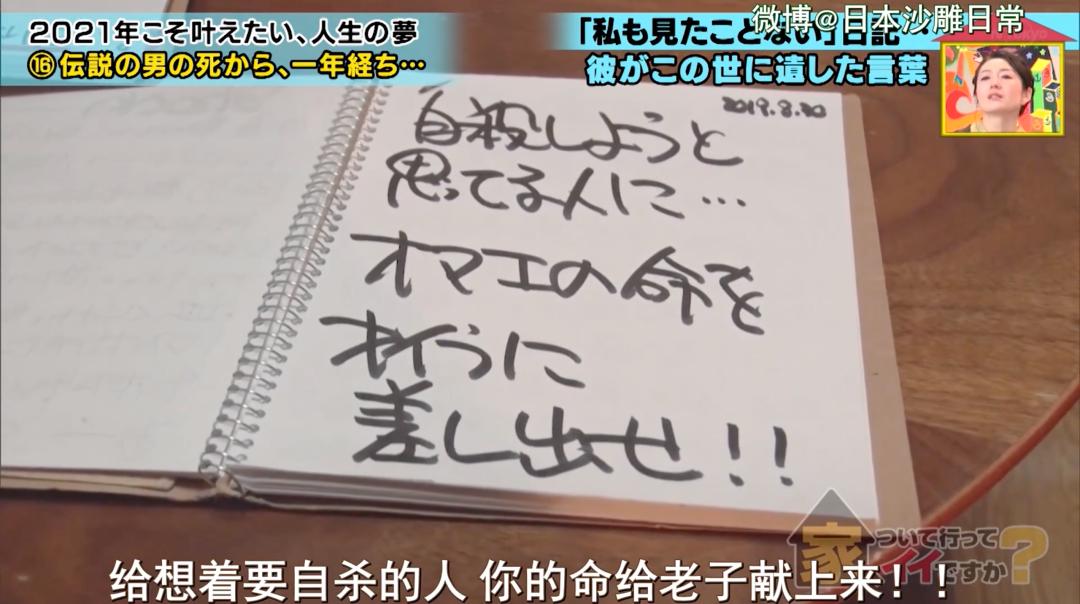 2021年こそ叶えたい、人生の夢
⑯伝説の男の死から、一年経ち…
「私も見たことない」日記
微博@日本沙雕日常
彼がこの世に遺した言葉
2019.8.20
自殺しようと
思ってる人に…
オマエの命を
オイラに
差し出せ!!
家ついて行ってイイですか?
给想着要自杀的人 你的命给老子献上来！！